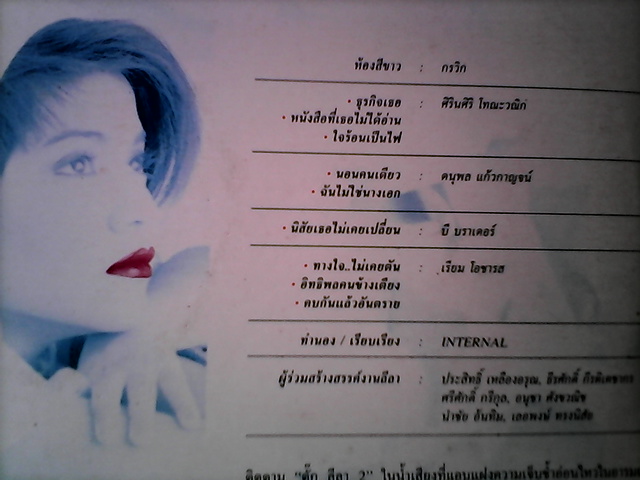 ห้องสีขาว : กรวิก
• ธุรกิจเธอ : ศิรินศิริ โทณะวณิก
• หนังสือที่เธอไม่ได้อ่าน
• ใจร้อนเป็นไฟ
• นอนคนเดียว : ดนุพล แก้วกาญจน์
• ฉันไม่ใช่นางเอก
• นิสัยเธอไม่เคยเปลี่ยน : บี บราเดอร์
• ทางใจ..ไม่เคยตัน : เรียม โอชารส
• อิทธิพลคนข้างเตียง
• คบกันแล้วอันตราย
ทำนอง / เรียบเรียง : INTERNAL
ผู้ร่วมสร้างสรรค์งานลีลา : ประสิทธิ์ เหลืองอรุณ, ธีรศักดิ์
ศรีศักดิ์ กรีกุล, อนุชา สังขวณิช
นำชัย อ้นทิม, เลอพงษ์ ทรงนิสัย
ติดตาม "ตั๊ก ลีลา 2" ในน้ำเสียงที่แอบแฝงความเจ็บช้ำอ่อนไหวในอารมณ์